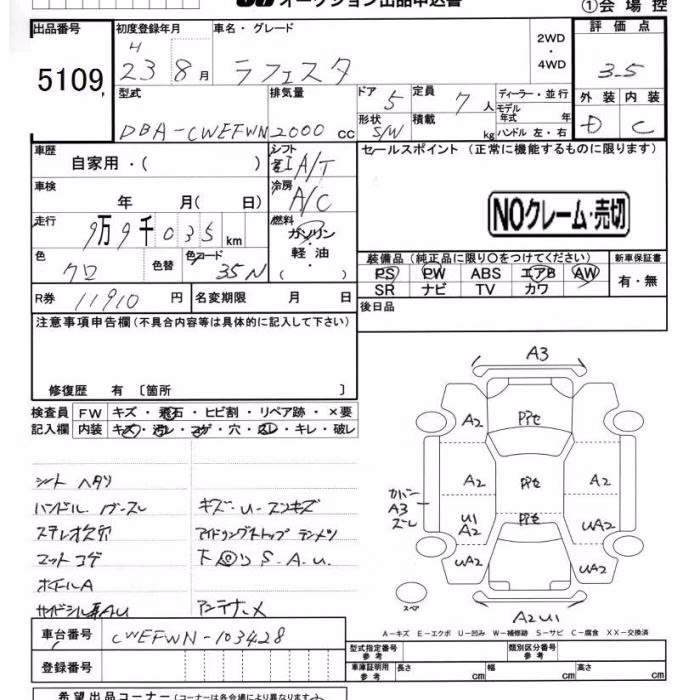 オークション出品申込書
①会場控
出品番号
5109
初度登録年月
H
23 8月
車名・グレード
ラフェスタ
2WD
・
4WD
評価点
3.5
外装 内装
D C
型式
DBA-CWEFWN
排気量
2000 cc
ドア 5
定員 7人
形状 S/W
積載 kg
ディーラー・並行
モデル年式 年
ハンドル 左・右
車歴
自家用・( )
シフト
A/T
車検
年 月( 日)
冷房
A/C
走行
9万9千035km
燃料
ガソリン
・
軽油
・
( )
色
クロ
色替
色コード
35N
R券 11910円
名変期限 月 日
セールスポイント(正常に機能するものに限ります)
NOクレーム・売切
装備品(純正品に限り○をつけてください)
新車保証書
PS PW ABS エアB AW
SR ナビ TV カワ
有・無
後日品
注意事項申告欄(不具合内容等は具体的に記入して下さい)
修復歴 有 〔箇所 〕
検査員 FW キズ・飛石・ヒビ割・リペア跡・×要
記入欄 内装 キズ・汚レ・コゲ・穴・スレ・キレ・破レ
シートヘタリ
ハンドル
キズ・U・スリキズ
ステレオ欠穴
アイドリングストップ
マットコゲ
下 S.A.U.
ホイールA
サイドシル AU
アンテナ×
A3
A2
A2
A2
カバー
A3
ズレ
U1
A2
UA2
UA2
UA2
A2U1
スペア
A-キズ E-エクボ U-凹み W-補修跡 S-サビ C-腐食 XX-交換済
車台番号 CWEFWN-103428
登録番号
型式指定番号
参考
類別区分番号
参考
車庫証明用
参考
長さ cm
幅 cm
高さ cm
希望出品コーナー(コーナーは各会場により異なります)